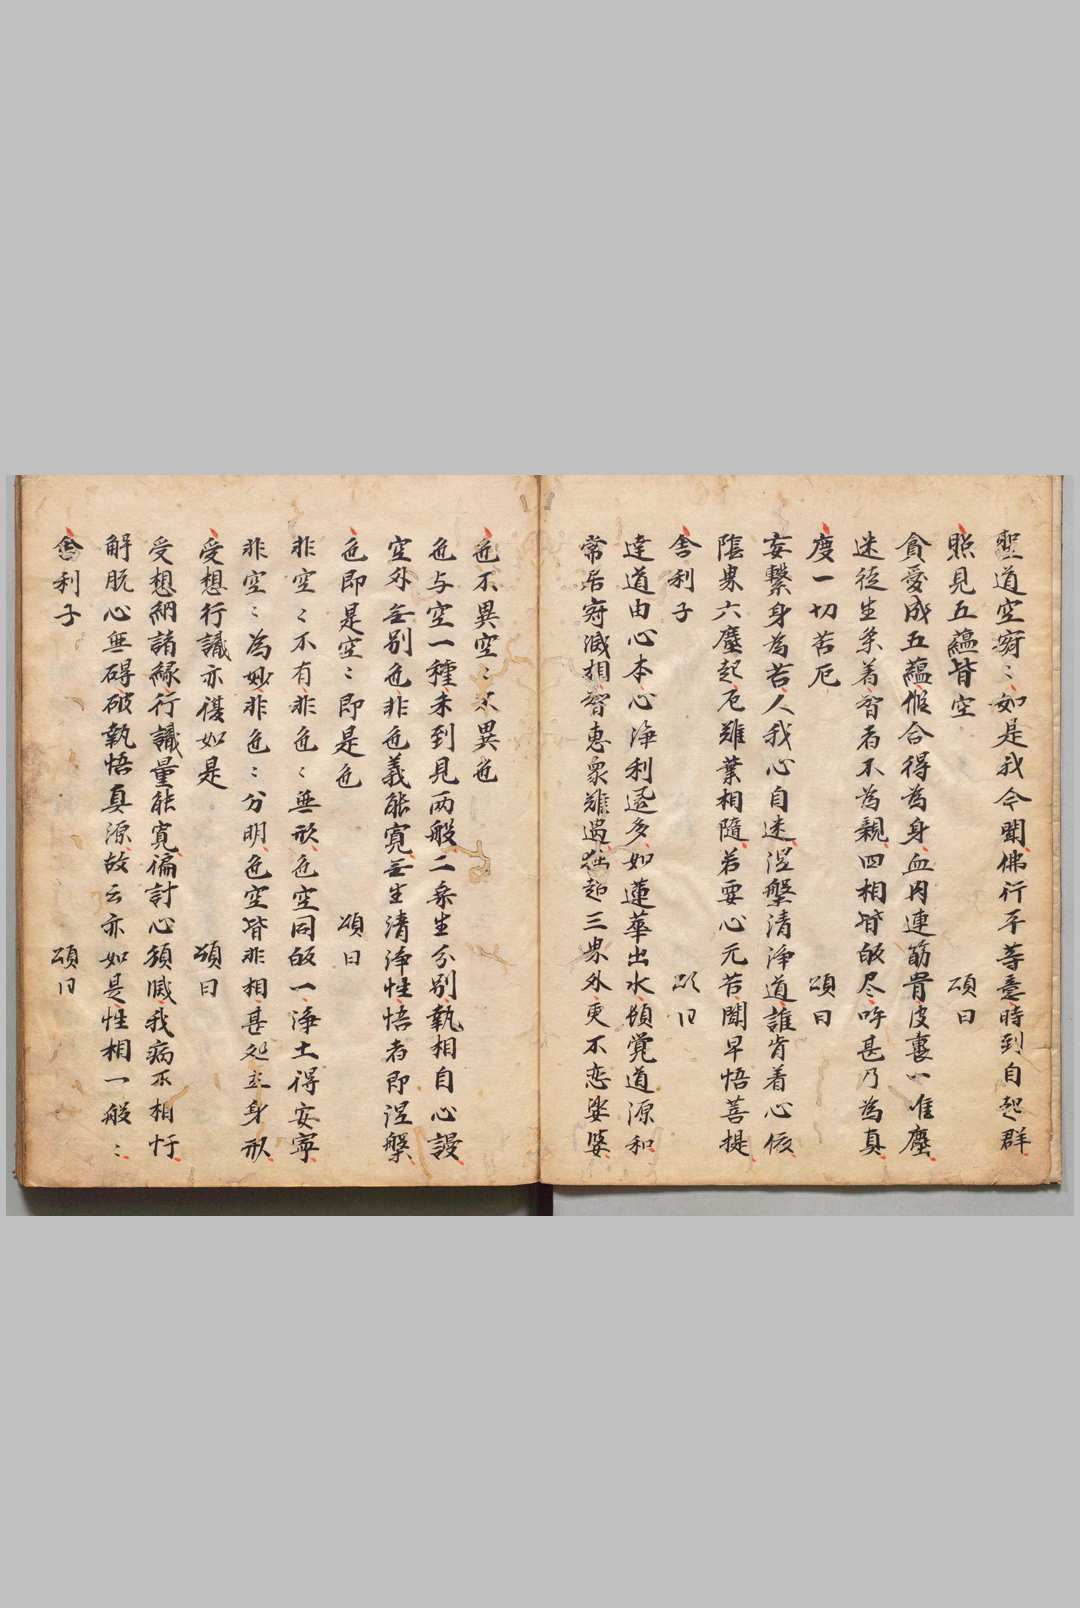 聖道空寂〻如是我今聞佛行平等意時到自超群
照見五蘊皆空 頌曰
貪愛成五蘊假合得為身血肉連筋骨皮裏一堆塵
迷徒生樂着智者不為親四相皆敀尽呼甚乃為真
度一切苦厄 頌曰
妄繫身為苦人我心自迷涅槃清淨道誰肯着心依
陰界六塵起厄難業相隨若要心无苦聞早悟菩提
舍利子 頌曰
達道由心本心淨利還多如蓮華出水頓覺道源和
常居寂滅相智惠衆難過独超三界外更不恋娑婆
色不異空〻不異色
色与空一種未到見両般二乗生分別執相自心謾
空外無別色非色義能寛無生清淨性悟者即涅槃
色即是空〻即是色 頌曰
非空〻不有非色〻無形色空同敀一淨土得安寧
非空〻為妙非色〻分明色空皆非相甚処立身形
受想行識亦復如是 頌曰
受想納諸縁行識量能寛徧計心須滅我病不相忏
解脱心無碍破執悟真源故云亦如是性相一般〻
舍利子 頌曰